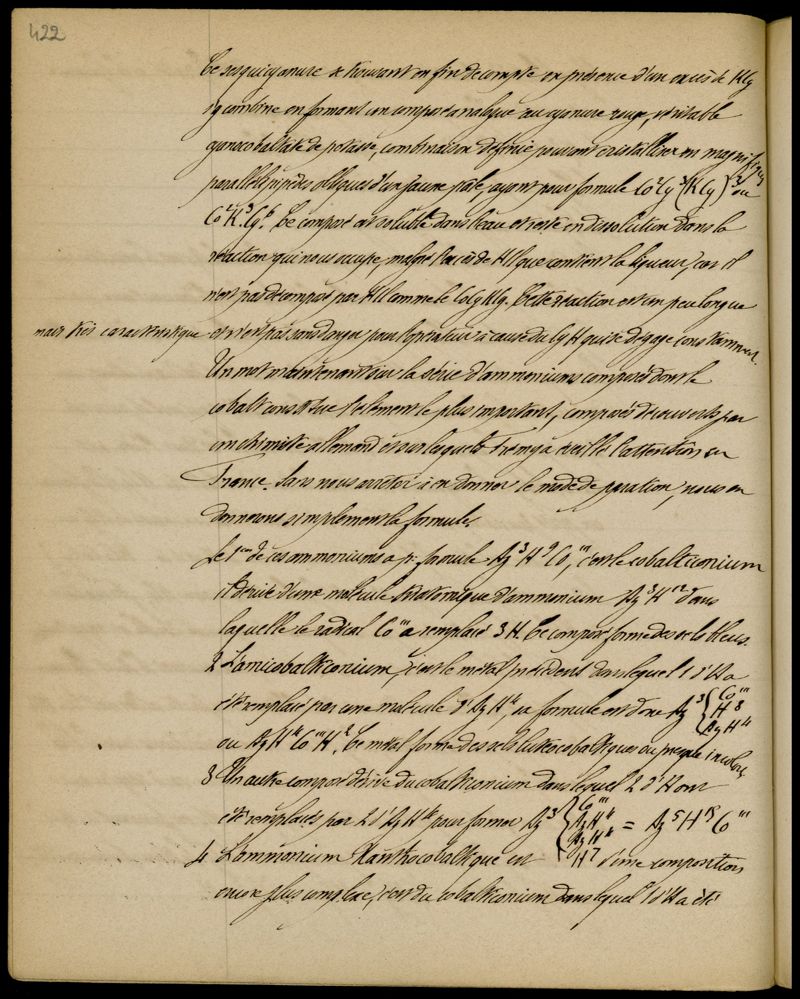 422
Ce sesquicyanure se trouvant en fin de compte en présence d'un excès de KCy
s'y combine en formant un composé analogue au cyanure rouge, véritable
cyanocobaltate de potasse, combinaison définie pouvant cristalliser en magnifiques
parallélipipèdes obliques d'un jaune pâle, ayant pour formule Co²Cy³(KCy)³ ou
Co²K³Cy⁶. Ce composé est soluble dans l'eau et reste en dissolution dans la
réaction qui nous occupe, malgré l'excès de HCl que contient la liqueur, car il
n'est pas décomposé par HCl comme le CoCy KCy. Cette réaction est un peu longue
mais très caractéristique et n'est pas sans danger pour l'opérateur à cause du CyH qui se dégage constamment.
Un mot maintenant sur la série d'ammoniums composés dont le
cobalt constitue l'élément le plus important, composés découverts par
un chimiste allemand et sur lesquels Fremy a éveillé l'attention en
France. Sans nous arrêter à en donner le mode de préparation, nous en
donnerons simplement la formule.
Le 1er de ces ammoniums a pr formule Az³H⁹Co''', c'est le cobalticonium
il dérive d'une molécule triatomique d'ammonium Az³H¹² dans
laquelle le radical Co''' a remplacé 3 H. Ce composé forme des sels bleus.
2 L'amicobalticonium, c'est le métal précédent dans lequel 1 d'H a
été remplacé par une molécule d'AzH⁴, sa formule est donc Az³ { Co''' H⁸ AzH⁴
ou Az⁴Co'''H¹². Ce métal forme des sels lutéocobaltiques ou presque incolores
3 Un autre composé dérive du cobalticonium dans lequel 2 d'H ont
été remplacés par 2 d'AzH⁴ pour former Az³ { Co''' AzH⁴ AzH⁴ H⁷ = Az⁵H¹⁵Co'''
4 L'ammonium Xanthocobaltique est d'une composition
encore plus complexe, c'est du cobalticonium dans lequel 1 d'H a été